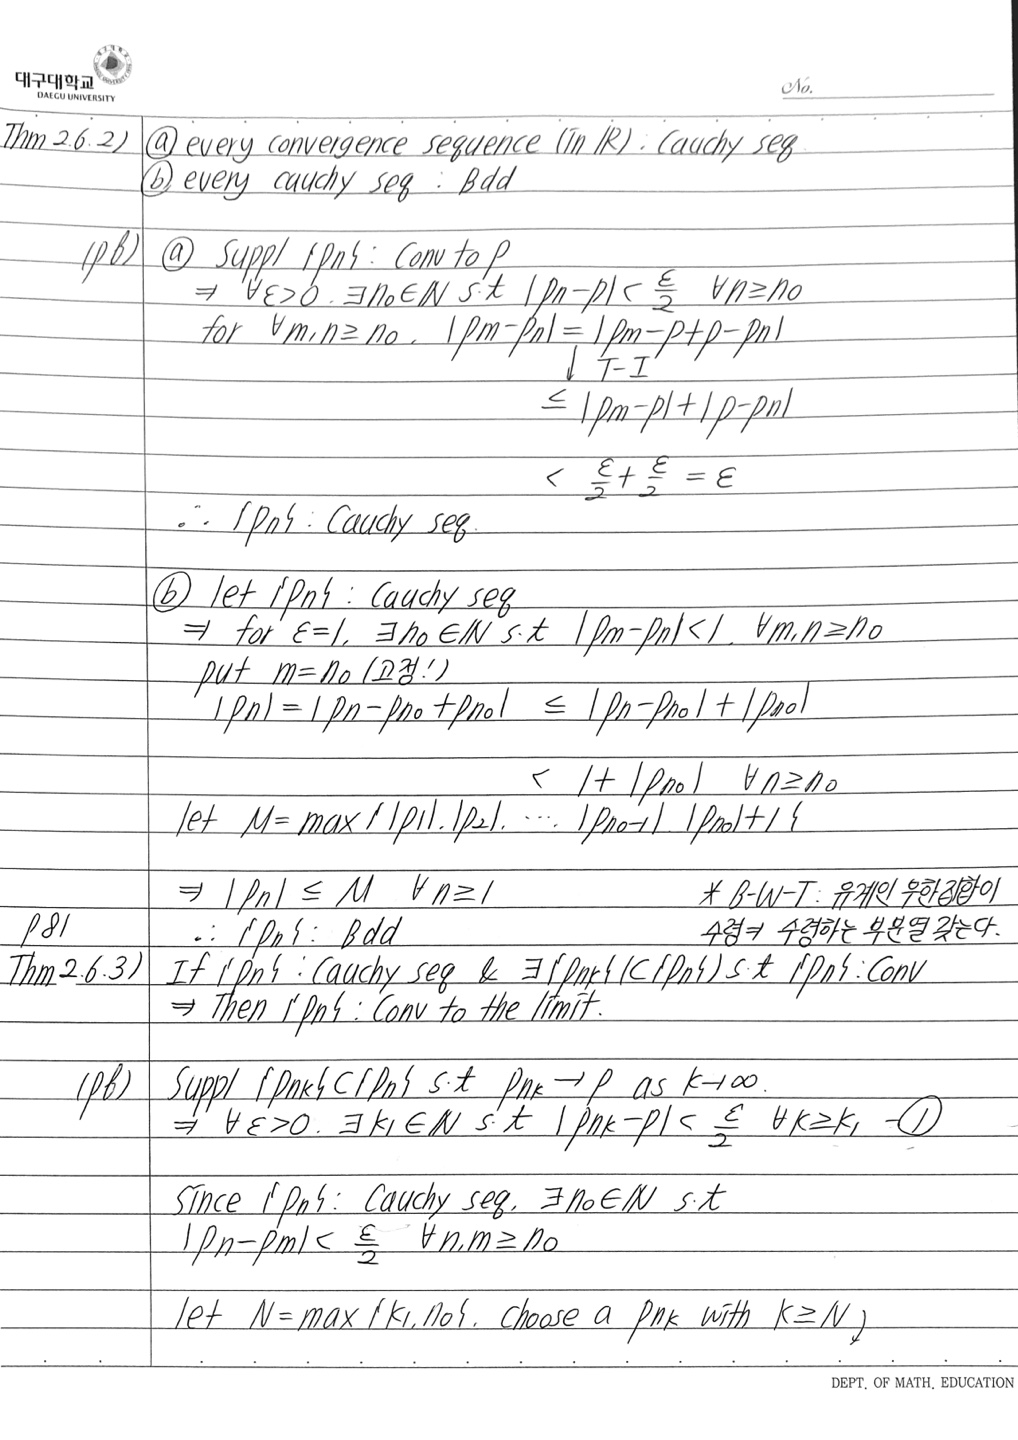 대구대학교
DAEGU UNIVERSITY
No.
Thm 2.6.2) ⓐ every convergence sequence (in ℝ) : Cauchy seq
ⓑ every cauchy seq : Bdd
(pf) ⓐ Suppl {pn} : Conv to p
⇒ ∀ε>0. ∃n₀∈ℕ s.t |pn-p| < ε/2 ∀n≥n₀
for ∀m,n≥n₀. |pm-pn| = |pm-p+p-pn|
↓ T-I
≤ |pm-p|+|p-pn|
< ε/2 + ε/2 = ε
∴ {pn} : Cauchy seq.
ⓑ let {pn} : Cauchy seq
⇒ for ε=1, ∃n₀∈ℕ s.t |pm-pn|<1. ∀m,n≥n₀
put m=n₀ (고정!)
|pn| = |pn-pn₀+pn₀| ≤ |pn-pn₀|+|pn₀|
< 1+|pn₀| ∀n≥n₀
let M = max{|p1|.|p2|. ⋯ |pn₀-1|. |pn₀|+1}
⇒ |pn| ≤ M ∀n≥1
* B-W-T : 유계인 무한집합이
p81 ∴ {pn} : Bdd
수렴⇒ 수렴하는 부분열 갖는다.
Thm 2.6.3) If {pn} : Cauchy seq & ∃{pnk}(⊂{pn}) s.t {pn} : Conv
⇒ Then {pn} : Conv to the limit.
(pf) Suppl {pnk}⊂{pn} s.t pnk → p as k→∞.
⇒ ∀ε>0. ∃k₁∈ℕ s.t |pnk-p| < ε/2 ∀k≥k₁ -①
since {pn} : Cauchy seq. ∃n₀∈ℕ s.t
|pn-pm| < ε/2 ∀n,m≥n₀
let N = max{k₁,n₀}. choose a pnk with k≥N
DEPT. OF MATH. EDUCATION